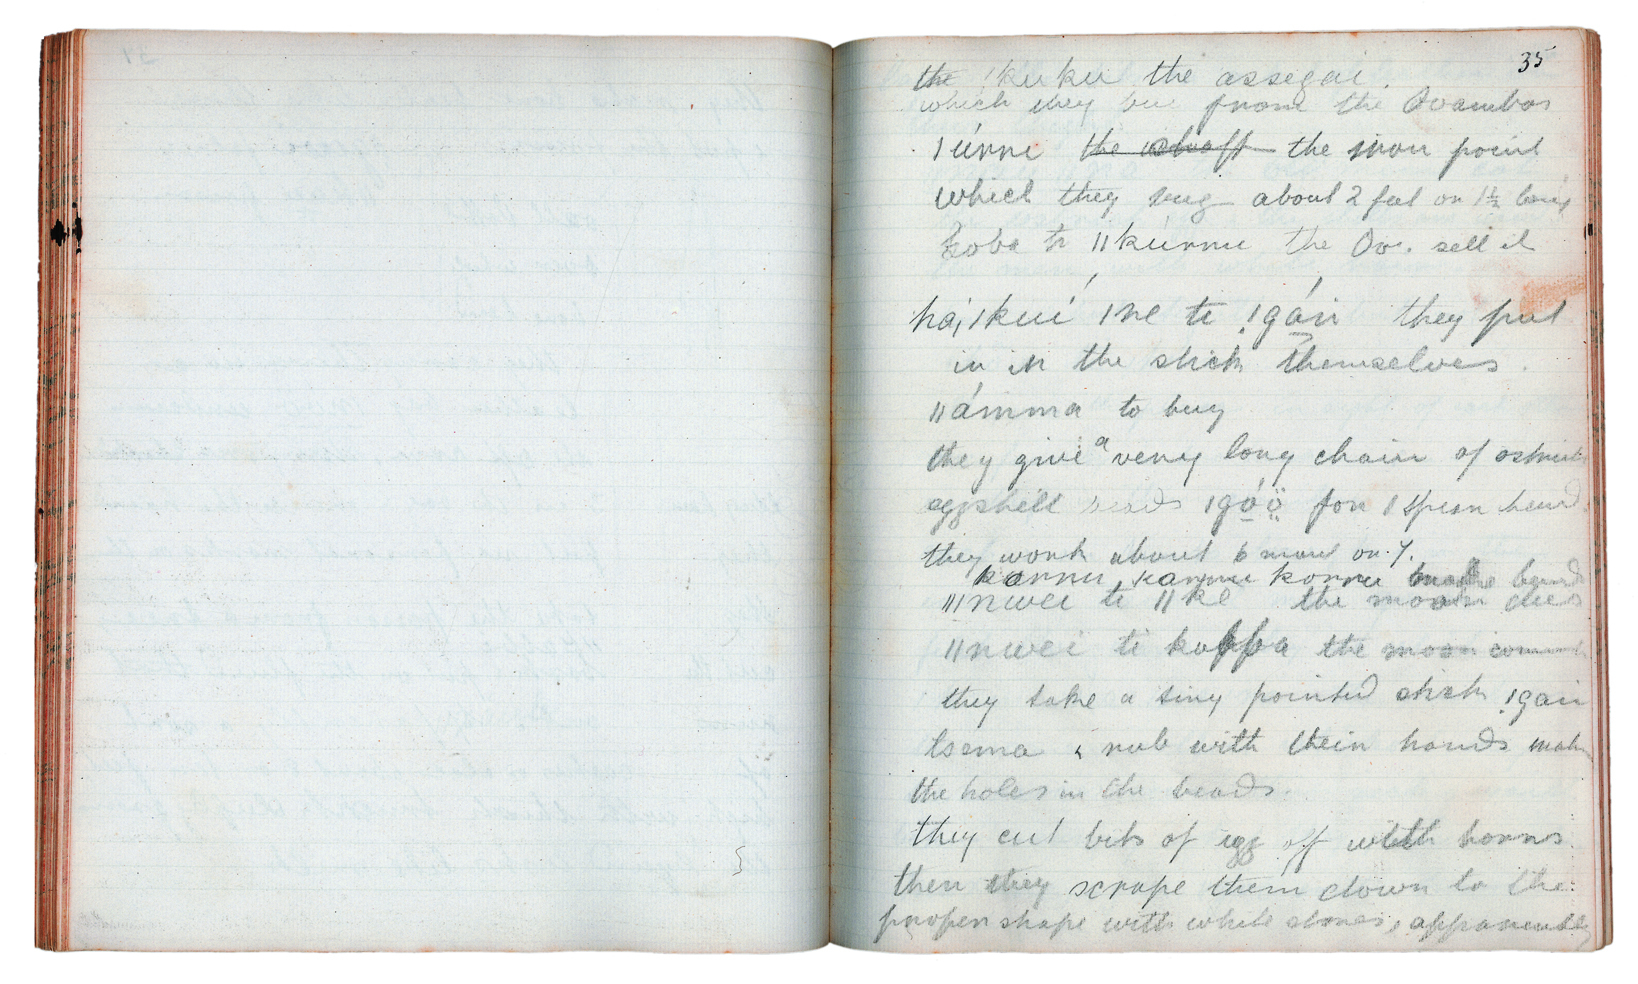 35
the ǀkuku the assegai.
which they buy from the Ovambos
ǀúrru the shaft the iron point
which they say about 2 feet or 1½ long
to ǁkúrru the Ov. sell it
há, ǀkuí ǀne ti ǃgáú they put
in in the stick themselves.
ǁámma to buy
they give a very long chain of ostrich
eggshell beads ǀgóö for 1 spear head.
they work about 6 mow or 7.
karru, karru korru make beads
ǁǀnwei ti ǁke the moon dies
ǁnwei ti koppa the moon
they take a tiny pointed stick ǃgaií
tsema & rub with their hands make
the holes in the beads.
they cut bits of egg off with horns
then they scrape them down to the
proper shape with white stones, apparently